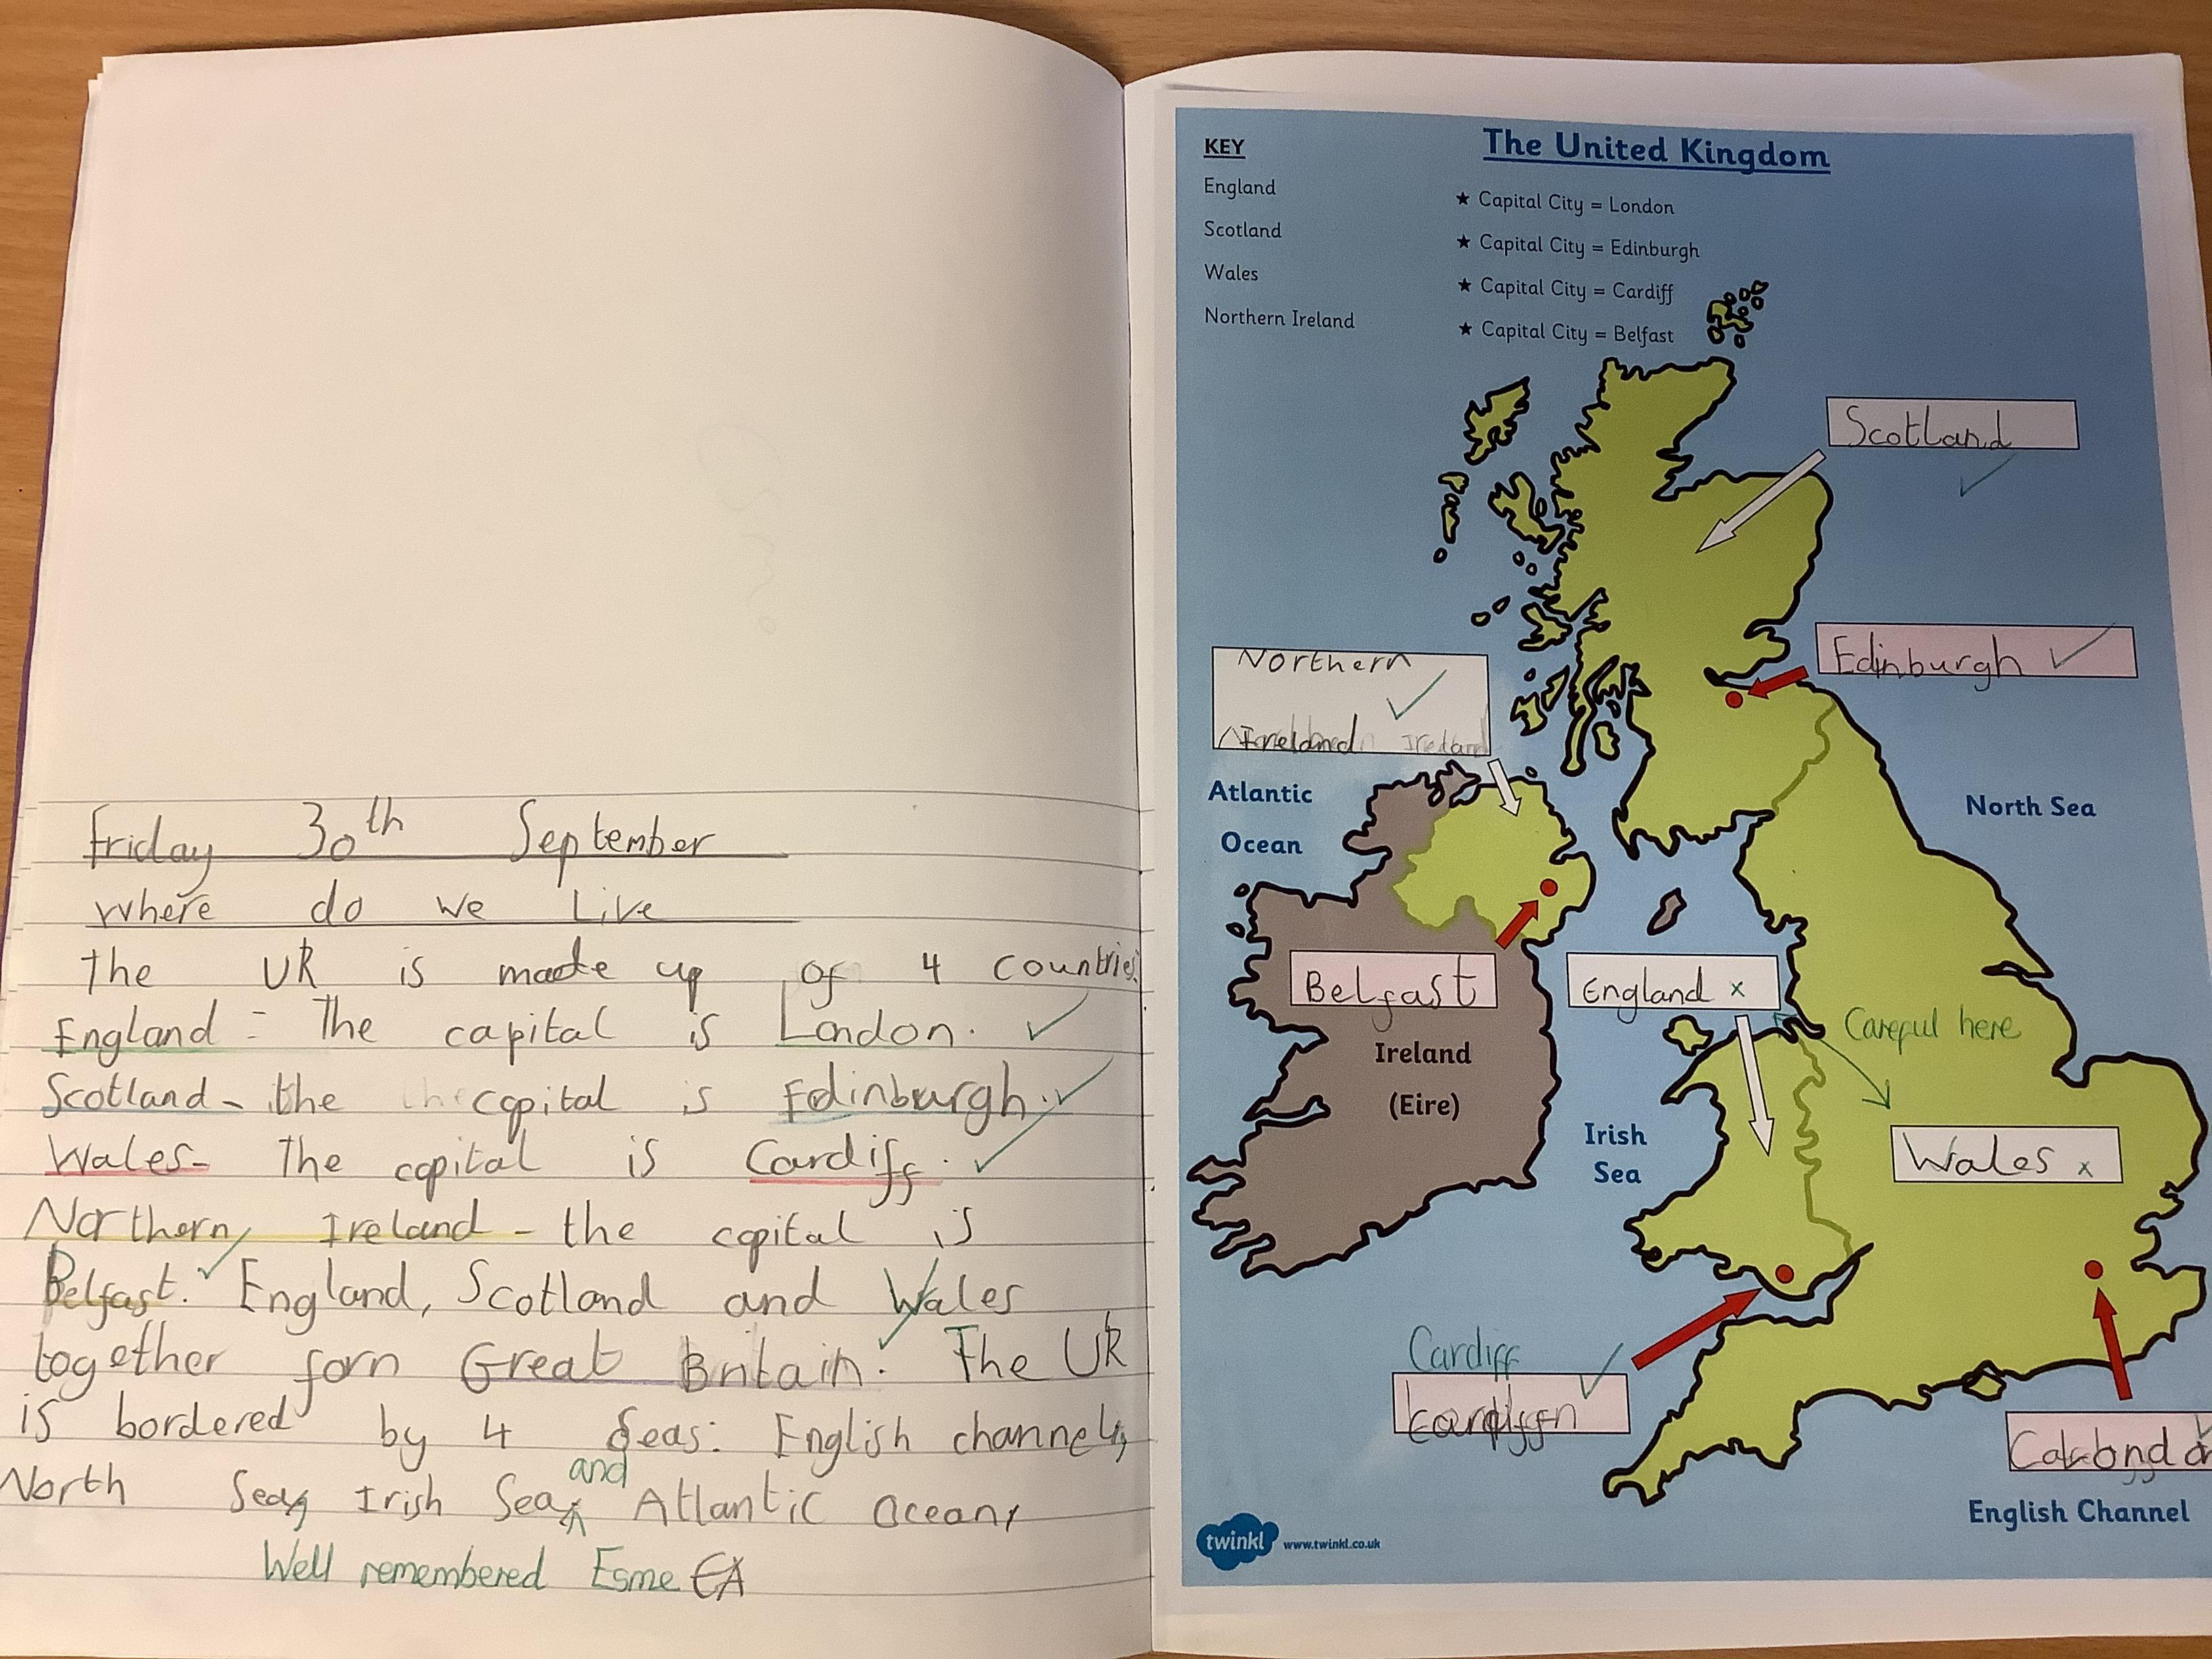 Friday 30th September
where do we Live
the UK is made up of 4 countries.
England - The capital is London.
Scotland - the capital is Edinburgh.
Wales - The capital is Cardiff.
Northern Ireland - the capital is
Belfast. England, Scotland and Wales
together forn Great Britain. The UK
is bordered by 4 Seas: English channel,
and
North Sea, Irish Sea Atlantic Ocean,
Well remembered Esme EA
The United Kingdom
KEY
England ★ Capital City = London
Scotland ★ Capital City = Edinburgh
Wales ★ Capital City = Cardiff
Northern Ireland ★ Capital City = Belfast
Scotland
Edinburgh
Northern
Ireland
Atlantic
Ocean
North Sea
Belfast
England x
Careful here
Ireland
(Eire)
Irish
Sea
Wales x
Cardiff
English Channel
twinkl www.twinkl.co.uk